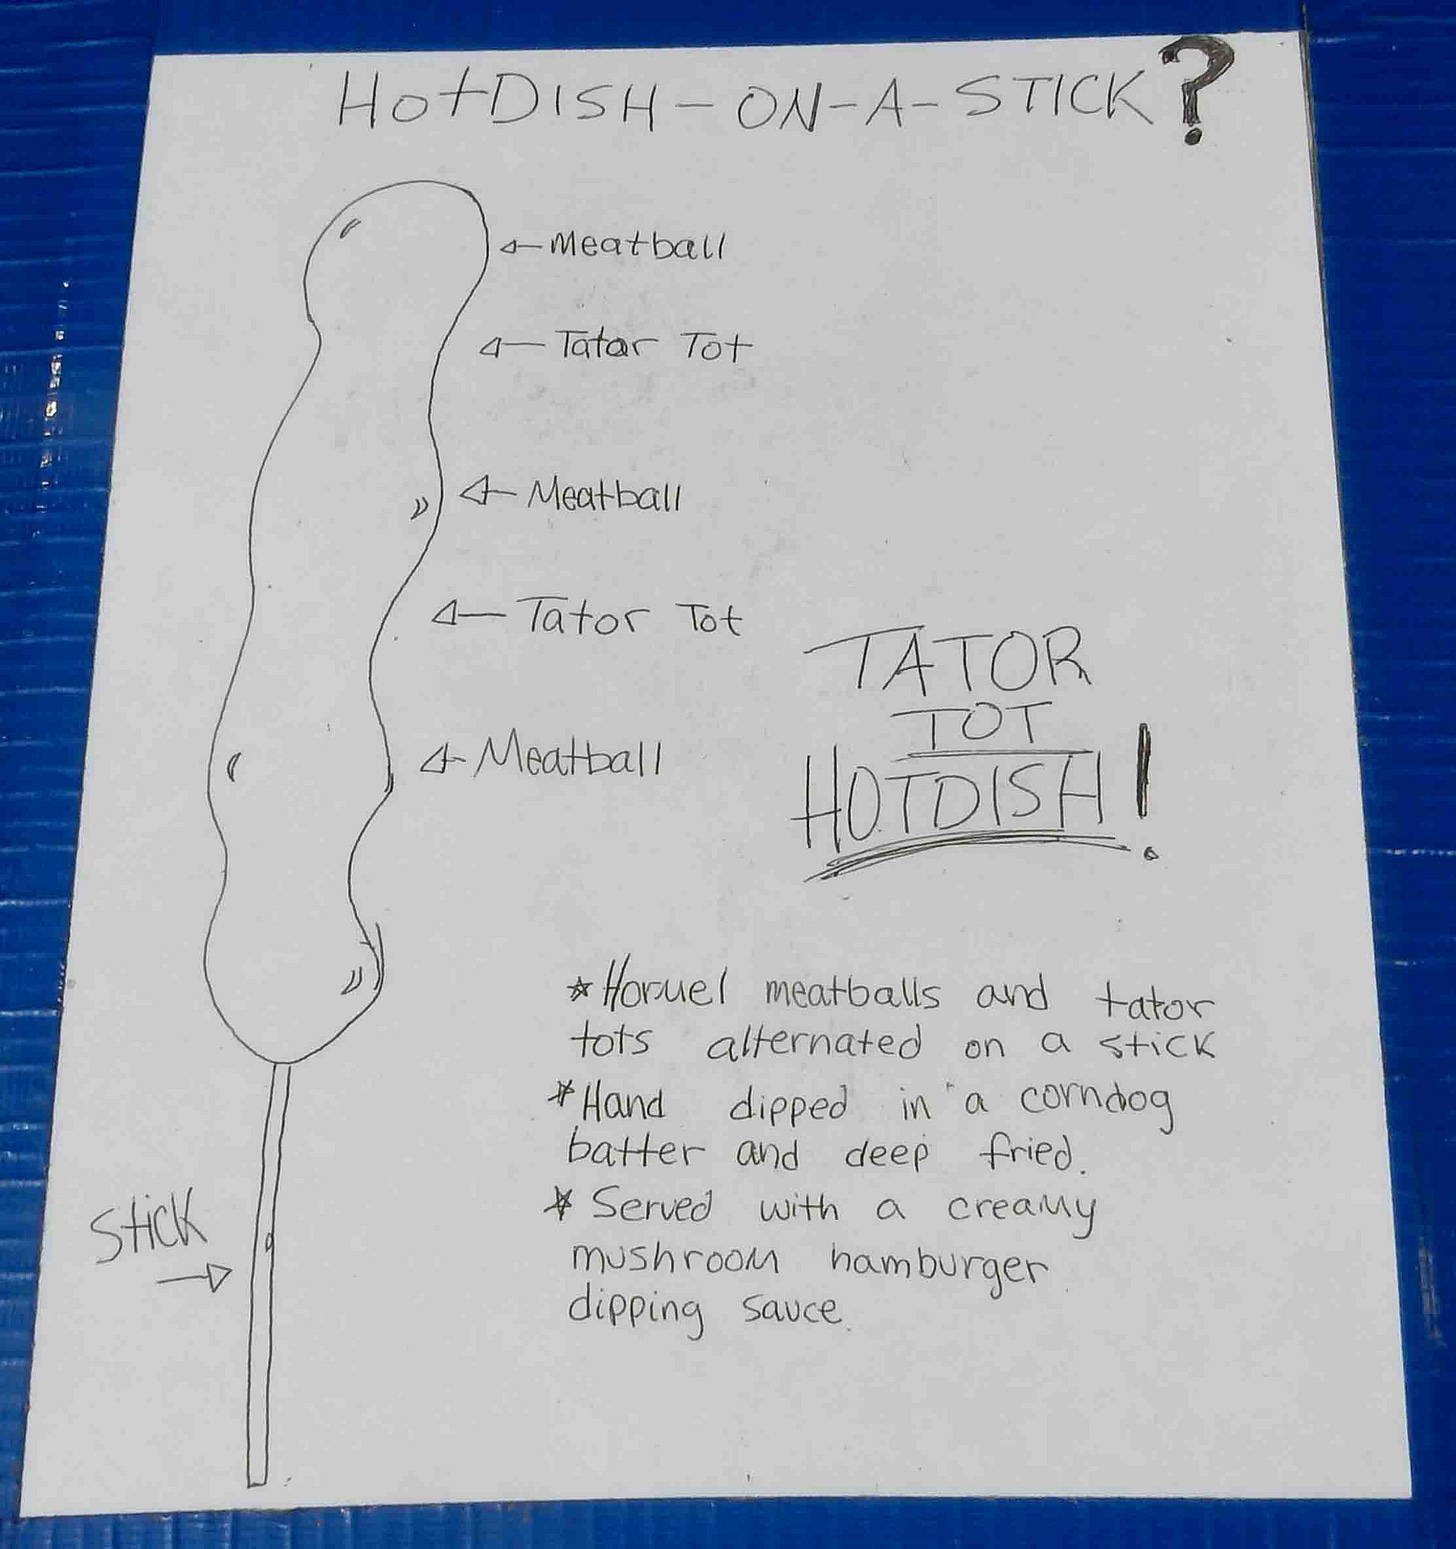 HotDISH-ON-A-STICK?
Meatball
Tatar Tot
Meatball
Tator Tot
Meatball
TATOR
TOT
HOTDISH!
*Hormel meatballs and tator
tots alternated on a stick
*Hand dipped in a corndog
batter and deep fried.
* Served with a creamy
mushroom hamburger
dipping sauce.
Stick